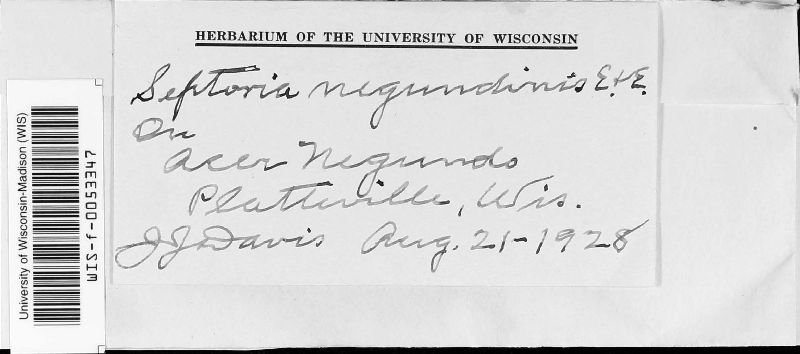 HERBARIUM OF THE UNIVERSITY OF WISCONSIN
Septoria negundinis E.&E.
On
Acer Negundo
Platteville, Wis.
J.J. Davis Aug. 21-1928
University of Wisconsin-Madison (WIS)
WIS-f-0053347